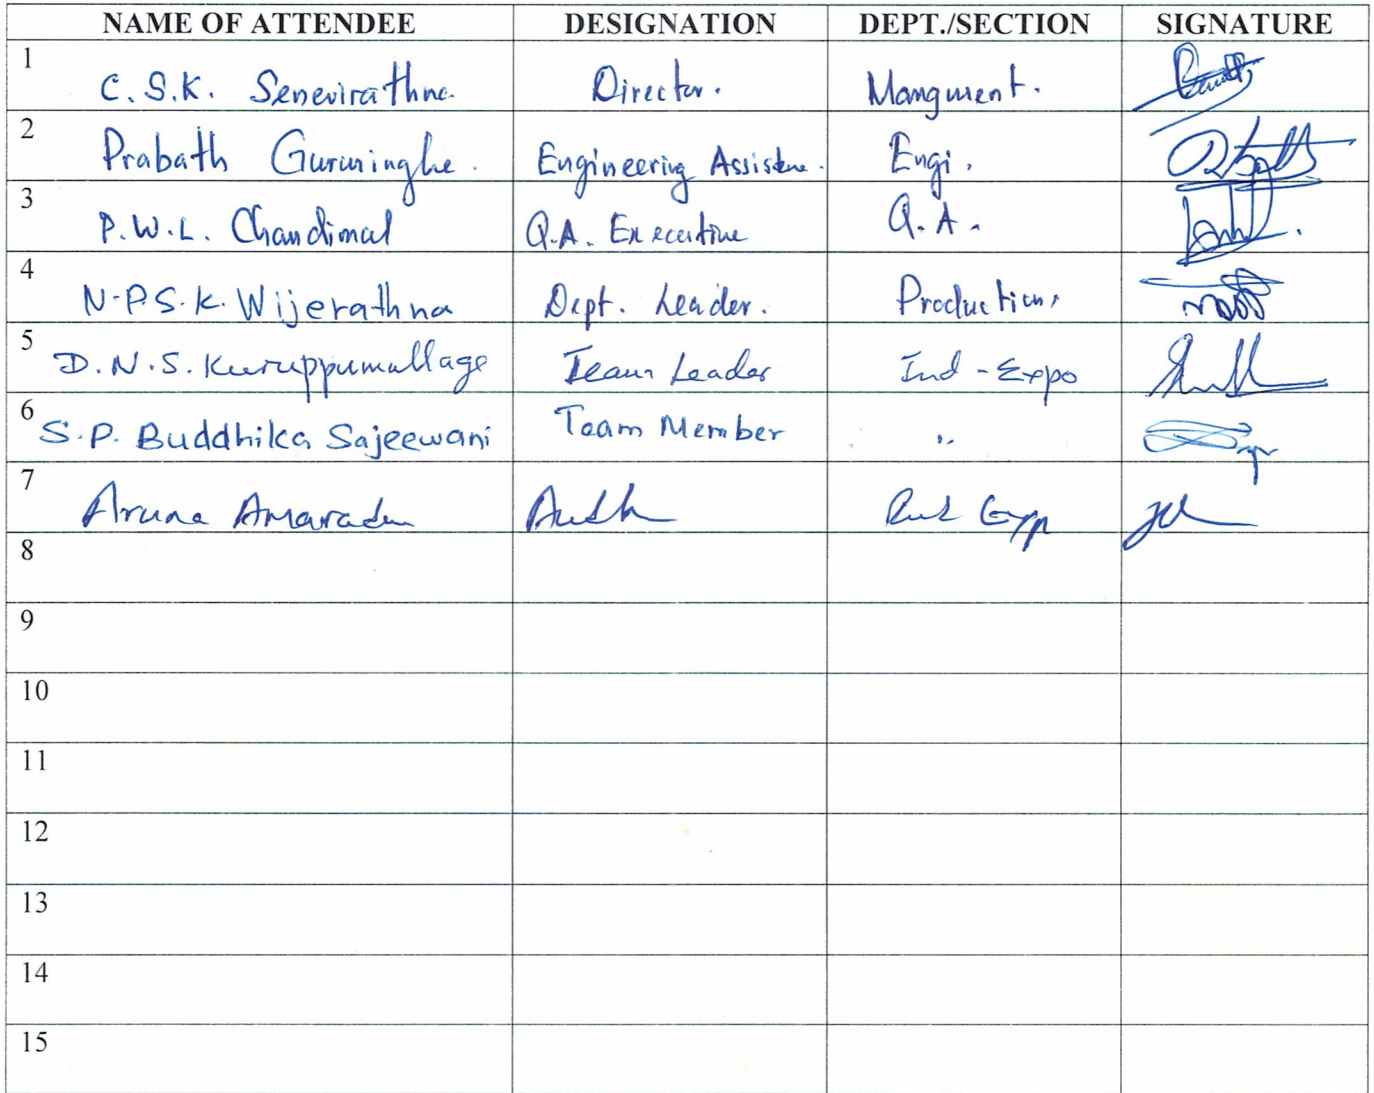 NAME OF ATTENDEE DESIGNATION DEPT./SECTION SIGNATURE
1 C.S.K. Senevirathna. Director. Mangment.
2 Prabath Guruwinghe. Engineering Engi.
3 P.W.L. Chandimal Q.A. Executive Q.A.
4 N.P.S.K. Wijerathna Dept. Leader. Production,
5 D.N.S. Kuruppumullage Team Leader Ind - Expo
6 S.P. Buddhika Sajeewani Team Member "
7 Aruna
8
9
10
11
12
13
14
15